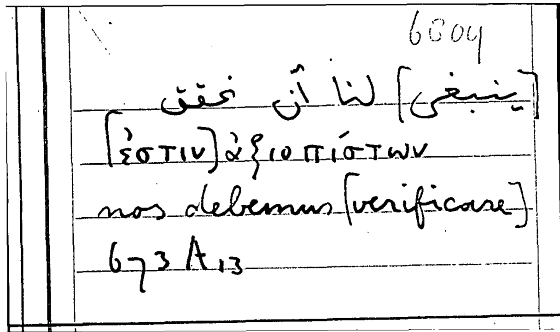 6804
[ينبغى] لنا أن نحقق
[ἐστιν] ἀξιοπίστων
nos debemus [verificare]
673 A 13